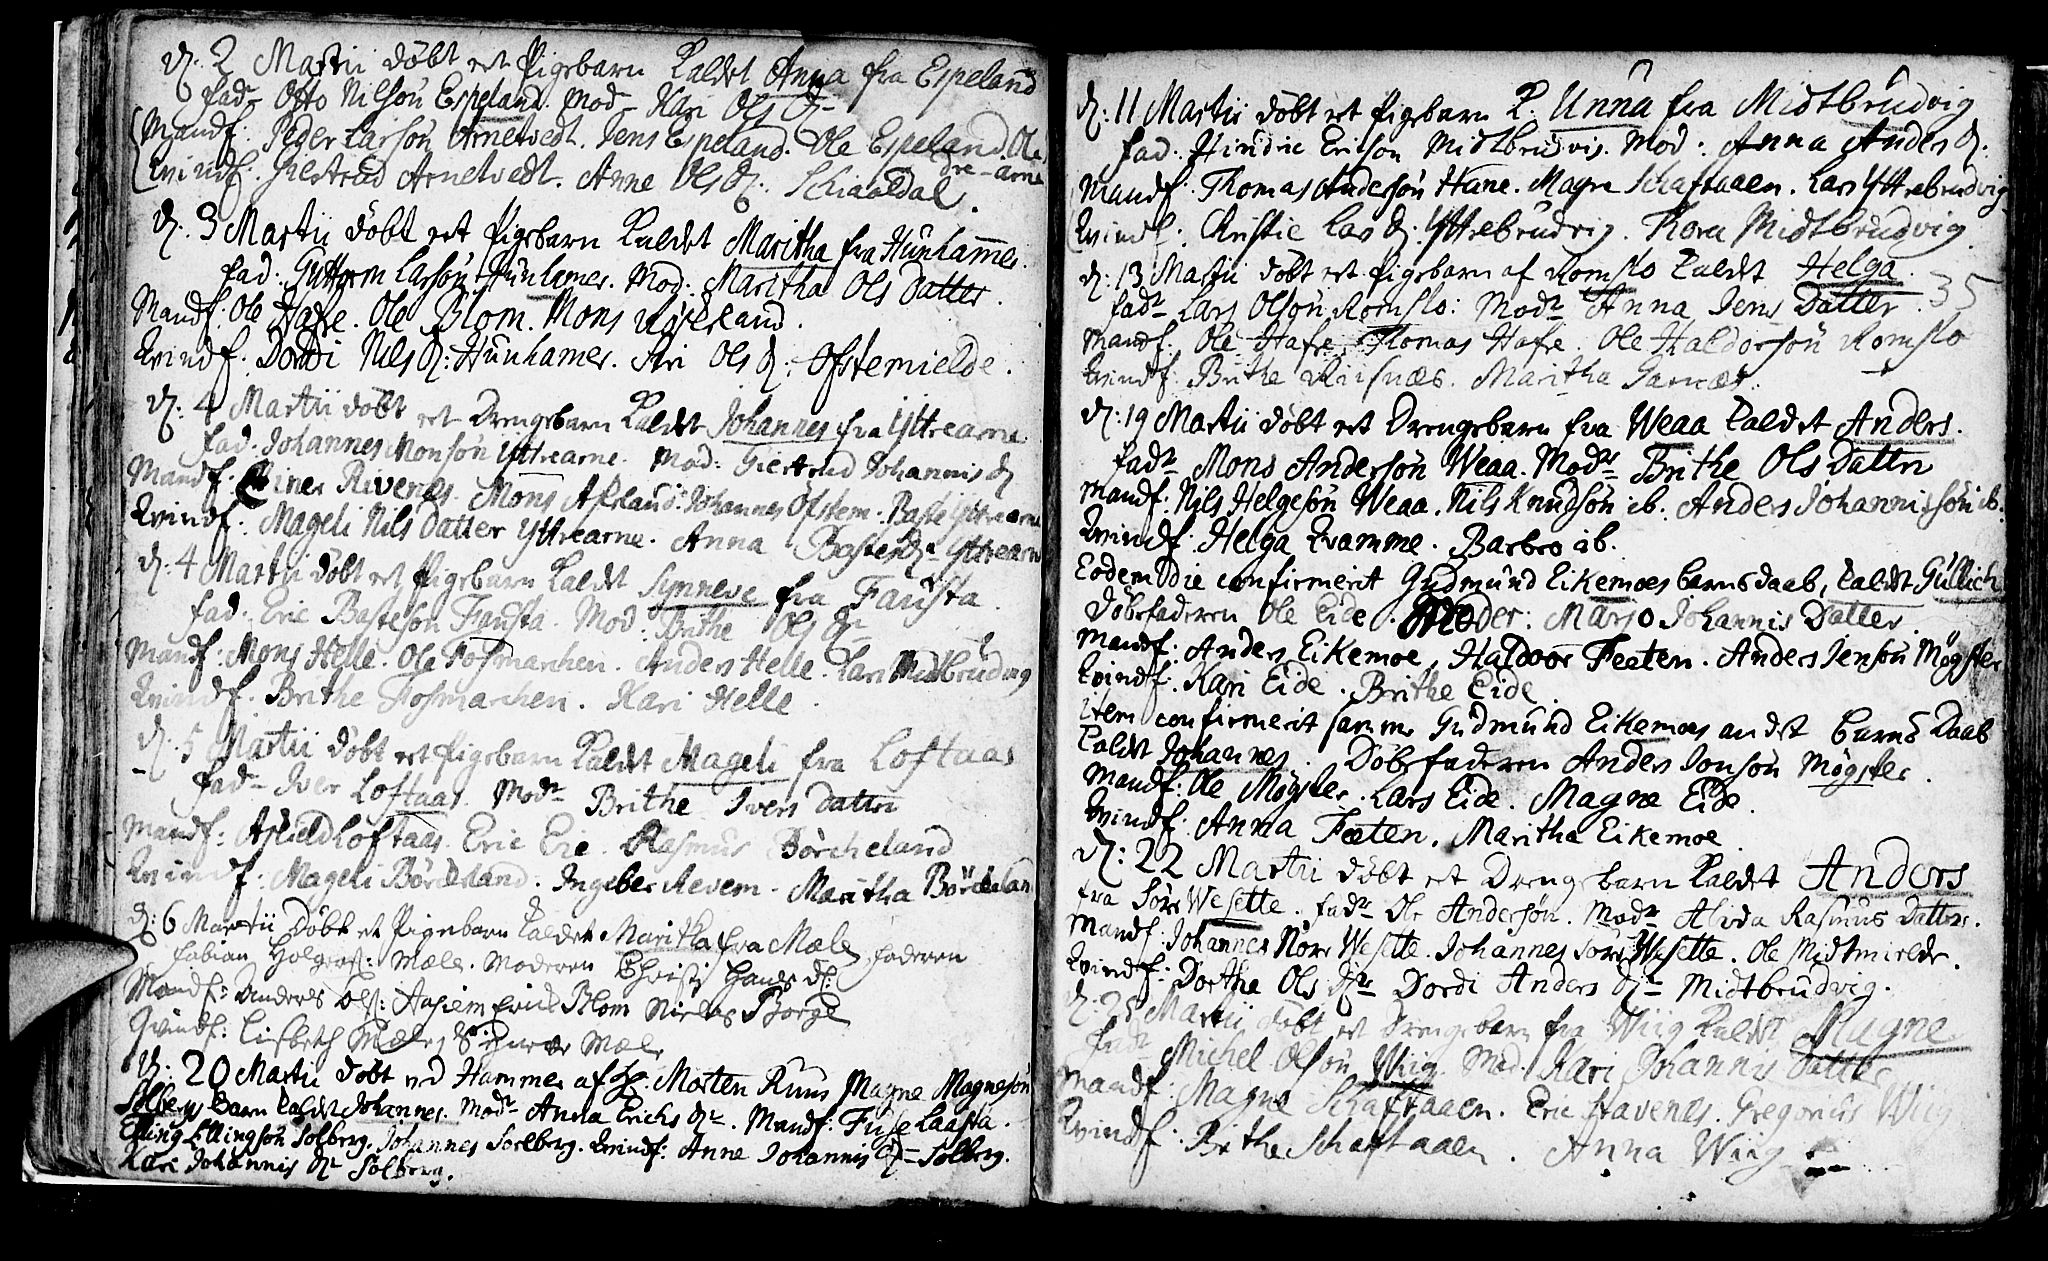 d. 2 Martii døbt et Pigebarn kaldet Anna fra Espeland
fad. Otto Nilsøn Espeland. Mod. Kari Ols d.
Mandf: Peder Larsøn Arnetvedt. Jens Espeland. Ole Espeland. Ole
Kvindf: Giertrud Arnetvedt. Anne Ols d. Schiældal.
d. 3 Martii døbt et Pigebarn kaldet Maritha fra Hünhammer.
fad: Guttorm Larsøn Hünhamer. Mod: Maritha Ols Datter.
Mandf: Ole Hafre. Ole Blom. Mons Røseland.
Kvindf: Dordi Nils d: Hünhamer. Ols d: Ofstemielde.
d: 4 Martii døbt et Drengebarn kaldet Johannes fra Yttrearne.
fad. Johannes Monsøn Yttrearne. Mod: Giertrud Johannis d
Mandf: Einer Rivenes. Mons Johannes Ofstem. Baste Yttrearne
Kvindf: Mageli Nils Datter Yttrearne. Anna Baste dr Yttrearne
d: 4 Martii døbt et Pigebarn kaldet Synneve fra Fausta.
fad. Eric Bastesøn Fausta. Mod: Brithe Ols dr
Mandf: Mons Helle. Ole Fosmarchen. Anders Helle. Lars Midtbrudvig
Kvindf. Brithe Fosmarchen. Kari Helle.
d: 5 Martii døbt et Pigebarn kaldet Mageli fra Loftaas
fad. Iver Loftaas. Modr Brithe Ivers datter
Mandf: Loftaas. Eric Rasmus Børcheland
Kvindf: Mageli Børcheland. Maritha Børcheland
d: 6 Martii Døbt et Pigebarn kaldet Maritha fra Mæle, faderen
fabian Mæle. Moderen Christi Hans d:
Mandf: Anders Ols: Blom Borge
Qvindf: Lisbeth Mæle, Mæle
d: 20 Martii døbt ved Hammer af Hr. Morten Magne Magnesøn
Solberg Barn kaldet Johannes. Modr Anna Erichs dr. Mandf:
Elling Ellingsøn Solberg. Johannes Solberg. Kvindf: Anne Johannis dr Solberg.
Kari Johannis dr Solberg.
d: 11 Martii døbt et Pigebarn k. Unna fra Midtbrudvig
fad: Hindric Ericsøn Midtbrudvig. Mod: Anna Anders d.
Mandf: Thomas Andersøn Hane. Magne Schaftaaen. Lars Yttrebrudvig
Kvindf: Kristie Lars d: Yttrebrudvig. Midtbrudvig
d: 13 Martii døbt et Pigebarn af Romslo kaldet Helga.
35
fadr Lars Olsøn Romslo: Modr Anna Jens Datter.
Mandf: Ole Hafre, Thomas Hafre. Ole Haldorsøn Romslo
Kvindf: Brithe Riisnæs. Maritha Garnæs.
d: 19 Martii døbt et Drengebarn fra Weaa kaldet Anders.
fadr Mons Andersøn Weaa. Modr Brithe Ols Datter
Mandf: Nils Helgesøn Weaa. Nils Knudsøn ib. Anders Johannissøn ib.
Kvindf: Helga Kvamme. Barbro ib.
Eodem Die confirmerit Gudmund Eikemoes barns daab, kaldet Gullich
Døbefaderen Ole Eide. Moder: Johannis Datter.
Mandf: Anders Eikemoe, Haldoor Feeten. Anders Jensøn Møgster
Kvindf: Kari Eide. Brithe Eide.
item confirmerit samme Gudmund Eikemoes andet Barns Daab
kaldet Johannes. Døbefaderen Anders Jonsøn Møgster.
Mandf: Ole Møgster. Lars Eide. Magne Eide.
Kvindf: Anna Fæeten. Maritha Eikemoe.
d: 22 Martii døbt et Drengebarn kaldet Anders
fra Søre Wesette. fadr Ole Andersøn. Modr Alvda Rasmus Datter.
Mandf: Johannes Nøre Wesette. Johannes Søre Wesette. Ole Midtmielde.
Kvindf: Dorthe Ols dr Dordi Anders dr Midtbrudvig.
d: 25 Martii døbt et Drengebarn fra Wiig kaldet Magne
fadr Michel Olsøn Wiig. Mod. Kari Johannis Datter
Mandf: Magne Schaftaaen. Eric Havenes. Gregorius Wiig
Kvindf: Brithe Schaftaaen. Anna Wiig